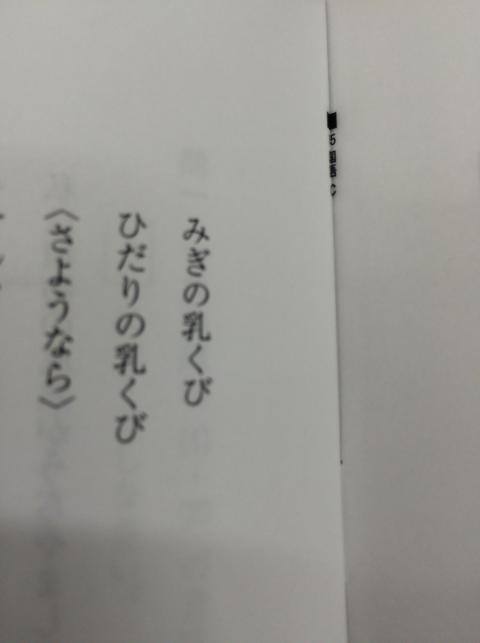 5 国語 C
みぎの乳くび
ひだりの乳くび
〈さようなら〉